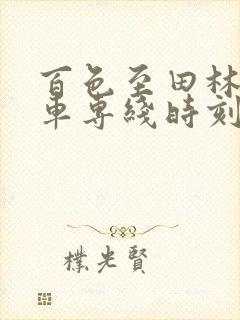 百色至田林
車專綫時刻
樸光賢